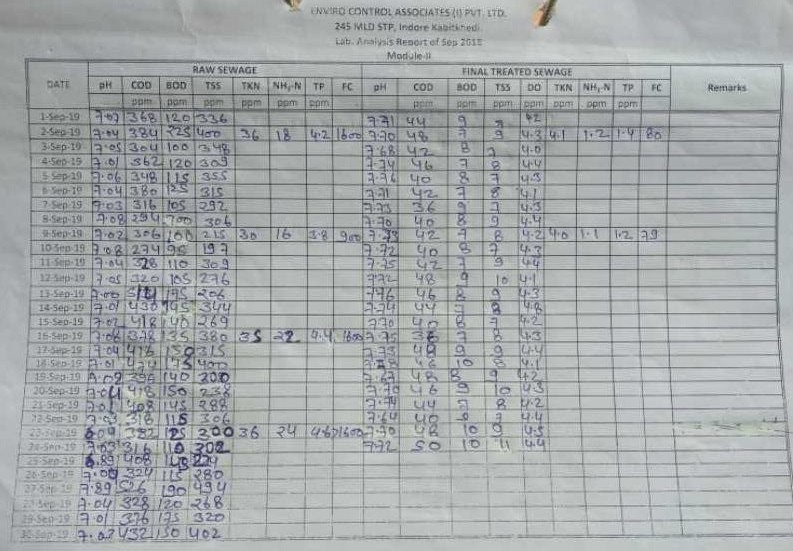 ENVIRO CONTROL ASSOCIATES (I) PVT. LTD.
245 MLD STP, Indore Kabitkhedi
Lab. Analysis Report of Sep
Module-II
DATE RAW SEWAGE FINAL TREATED SEWAGE Remarks
pH COD BOD TSS TKN NH3-N TP FC pH COD BOD TSS DO TKN NH3-N TP FC
ppm ppm ppm ppm ppm ppm ppm ppm ppm ppm ppm ppm ppm
1-Sep-19 7.07 368 120 336 7.71 44 9 42
2-Sep-19 7.04 384 125 400 36 18 4.2 1600 7.70 48 7 9 4.3 4.1 1.2 1.4 80
3-Sep-19 7.05 304 100 348 7.68 42 8 7 4.0
4-Sep-19 7.01 362 120 309 7.74 46 7 8 4.4
5-Sep-19 7.06 348 115 355 7.76 40 8 7 4.3
6-Sep-19 7.04 380 125 315 7.71 42 7 8 4.1
7-Sep-19 7.03 316 105 292 7.73 36 9 7 4.3
8-Sep-19 7.08 294 100 306 7.70 40 8 9 4.4
9-Sep-19 7.02 306 100 215 30 16 3.8 900 7.73 42 7 8 4.2 4.0 1.1 1.2 79
10-Sep-19 7.08 274 95 197 7.72 40 8 7 4.3
11-Sep-19 7.04 328 110 309 7.75 42 7 9 4.4
12-Sep-19 7.05 320 105 276 7.72 48 9 10 4.1
13-Sep-19 175 206 7.76 46 8 9 4.3
14-Sep-19 7.01 430 145 344 7.74 44 7 8 4.8
15-Sep-19 7.07 418 140 269 7.70 40 8 7 4.2
16-Sep-19 7.06 378 135 380 35 22 4.4 1600 7.75 36 7 8 4.3
17-Sep-19 7.04 416 150 315 7.73 9 9 4.4
18-Sep-19 7.01 474 175 400 46 10 8 4.1
19-Sep-19 140 200 7.67 48 8 9 4.2
20-Sep-19 7.04 418 150 238 7.70 46 9 10 4.3
21-Sep-19 408 145 288 7.74 44 7 8 4.2
22-Sep-19 7.03 318 115 306 7.64 40 7 4.4
23-Sep-19 382 125 300 36 24 1600 7.70 48 10 9 4.5
24-Sep-19 7.03 316 110 302 7.72 50 10 11 4.4
25-Sep-19 6.89 408 140 224
26-Sep-19 324 115 280
27-Sep-19 7.89 526 190 494
28-Sep-19 7.04 328 120 268
29-Sep-19 7.01 376 175 320
30-Sep-19 7.02 432 150 402